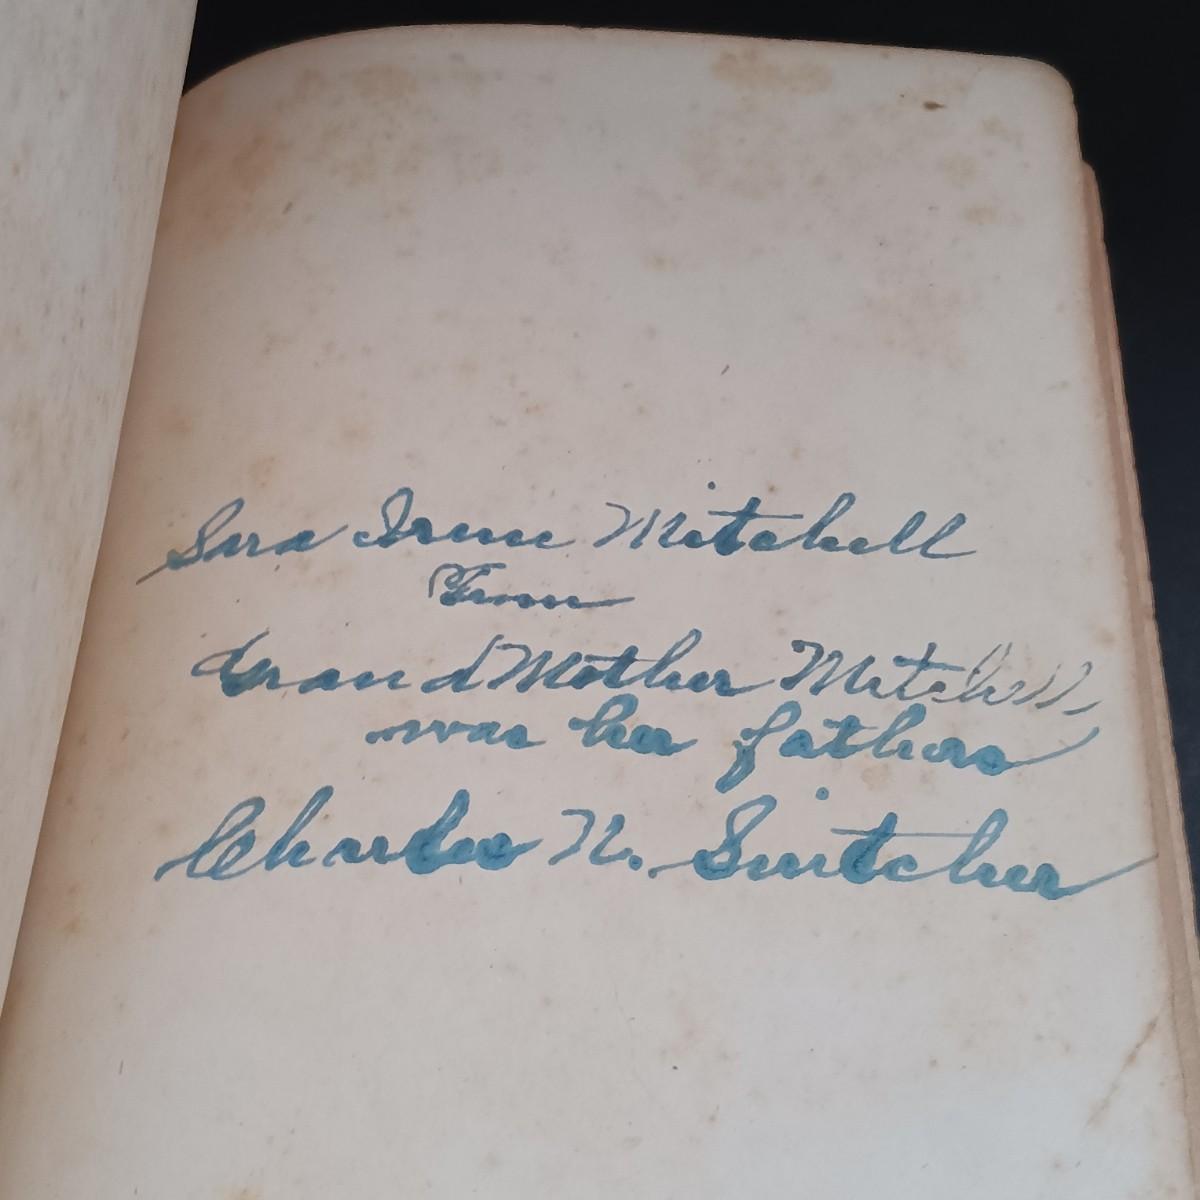 Sara Irene Mitchell
From
Grand Mother Mitchell
was her fathers
Charles N.